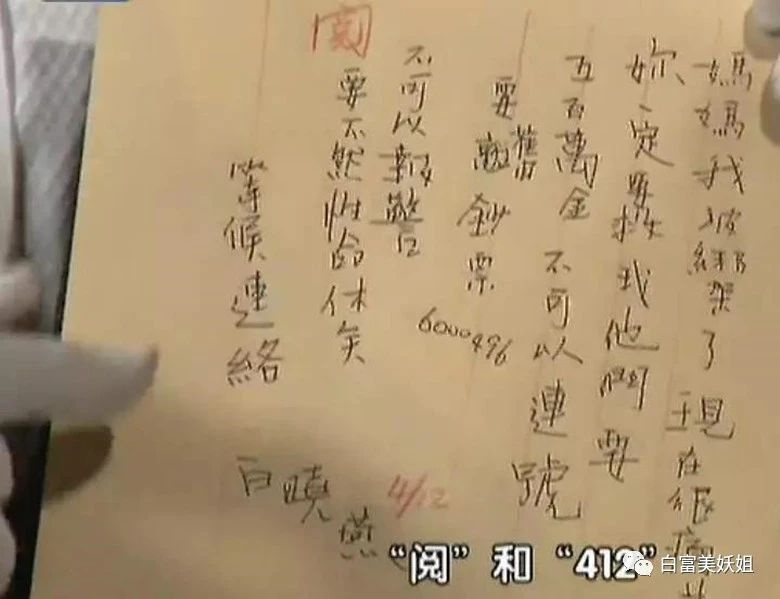 媽媽我被綁架了現在很痛
妳一定要救我他們要
五百萬金不可以連號
要舊鈔票
6000496
不可以報警
要不然性命休矣
閱
等候連絡
白曉燕
4/12
“阅”和“412”
白富美妖姐